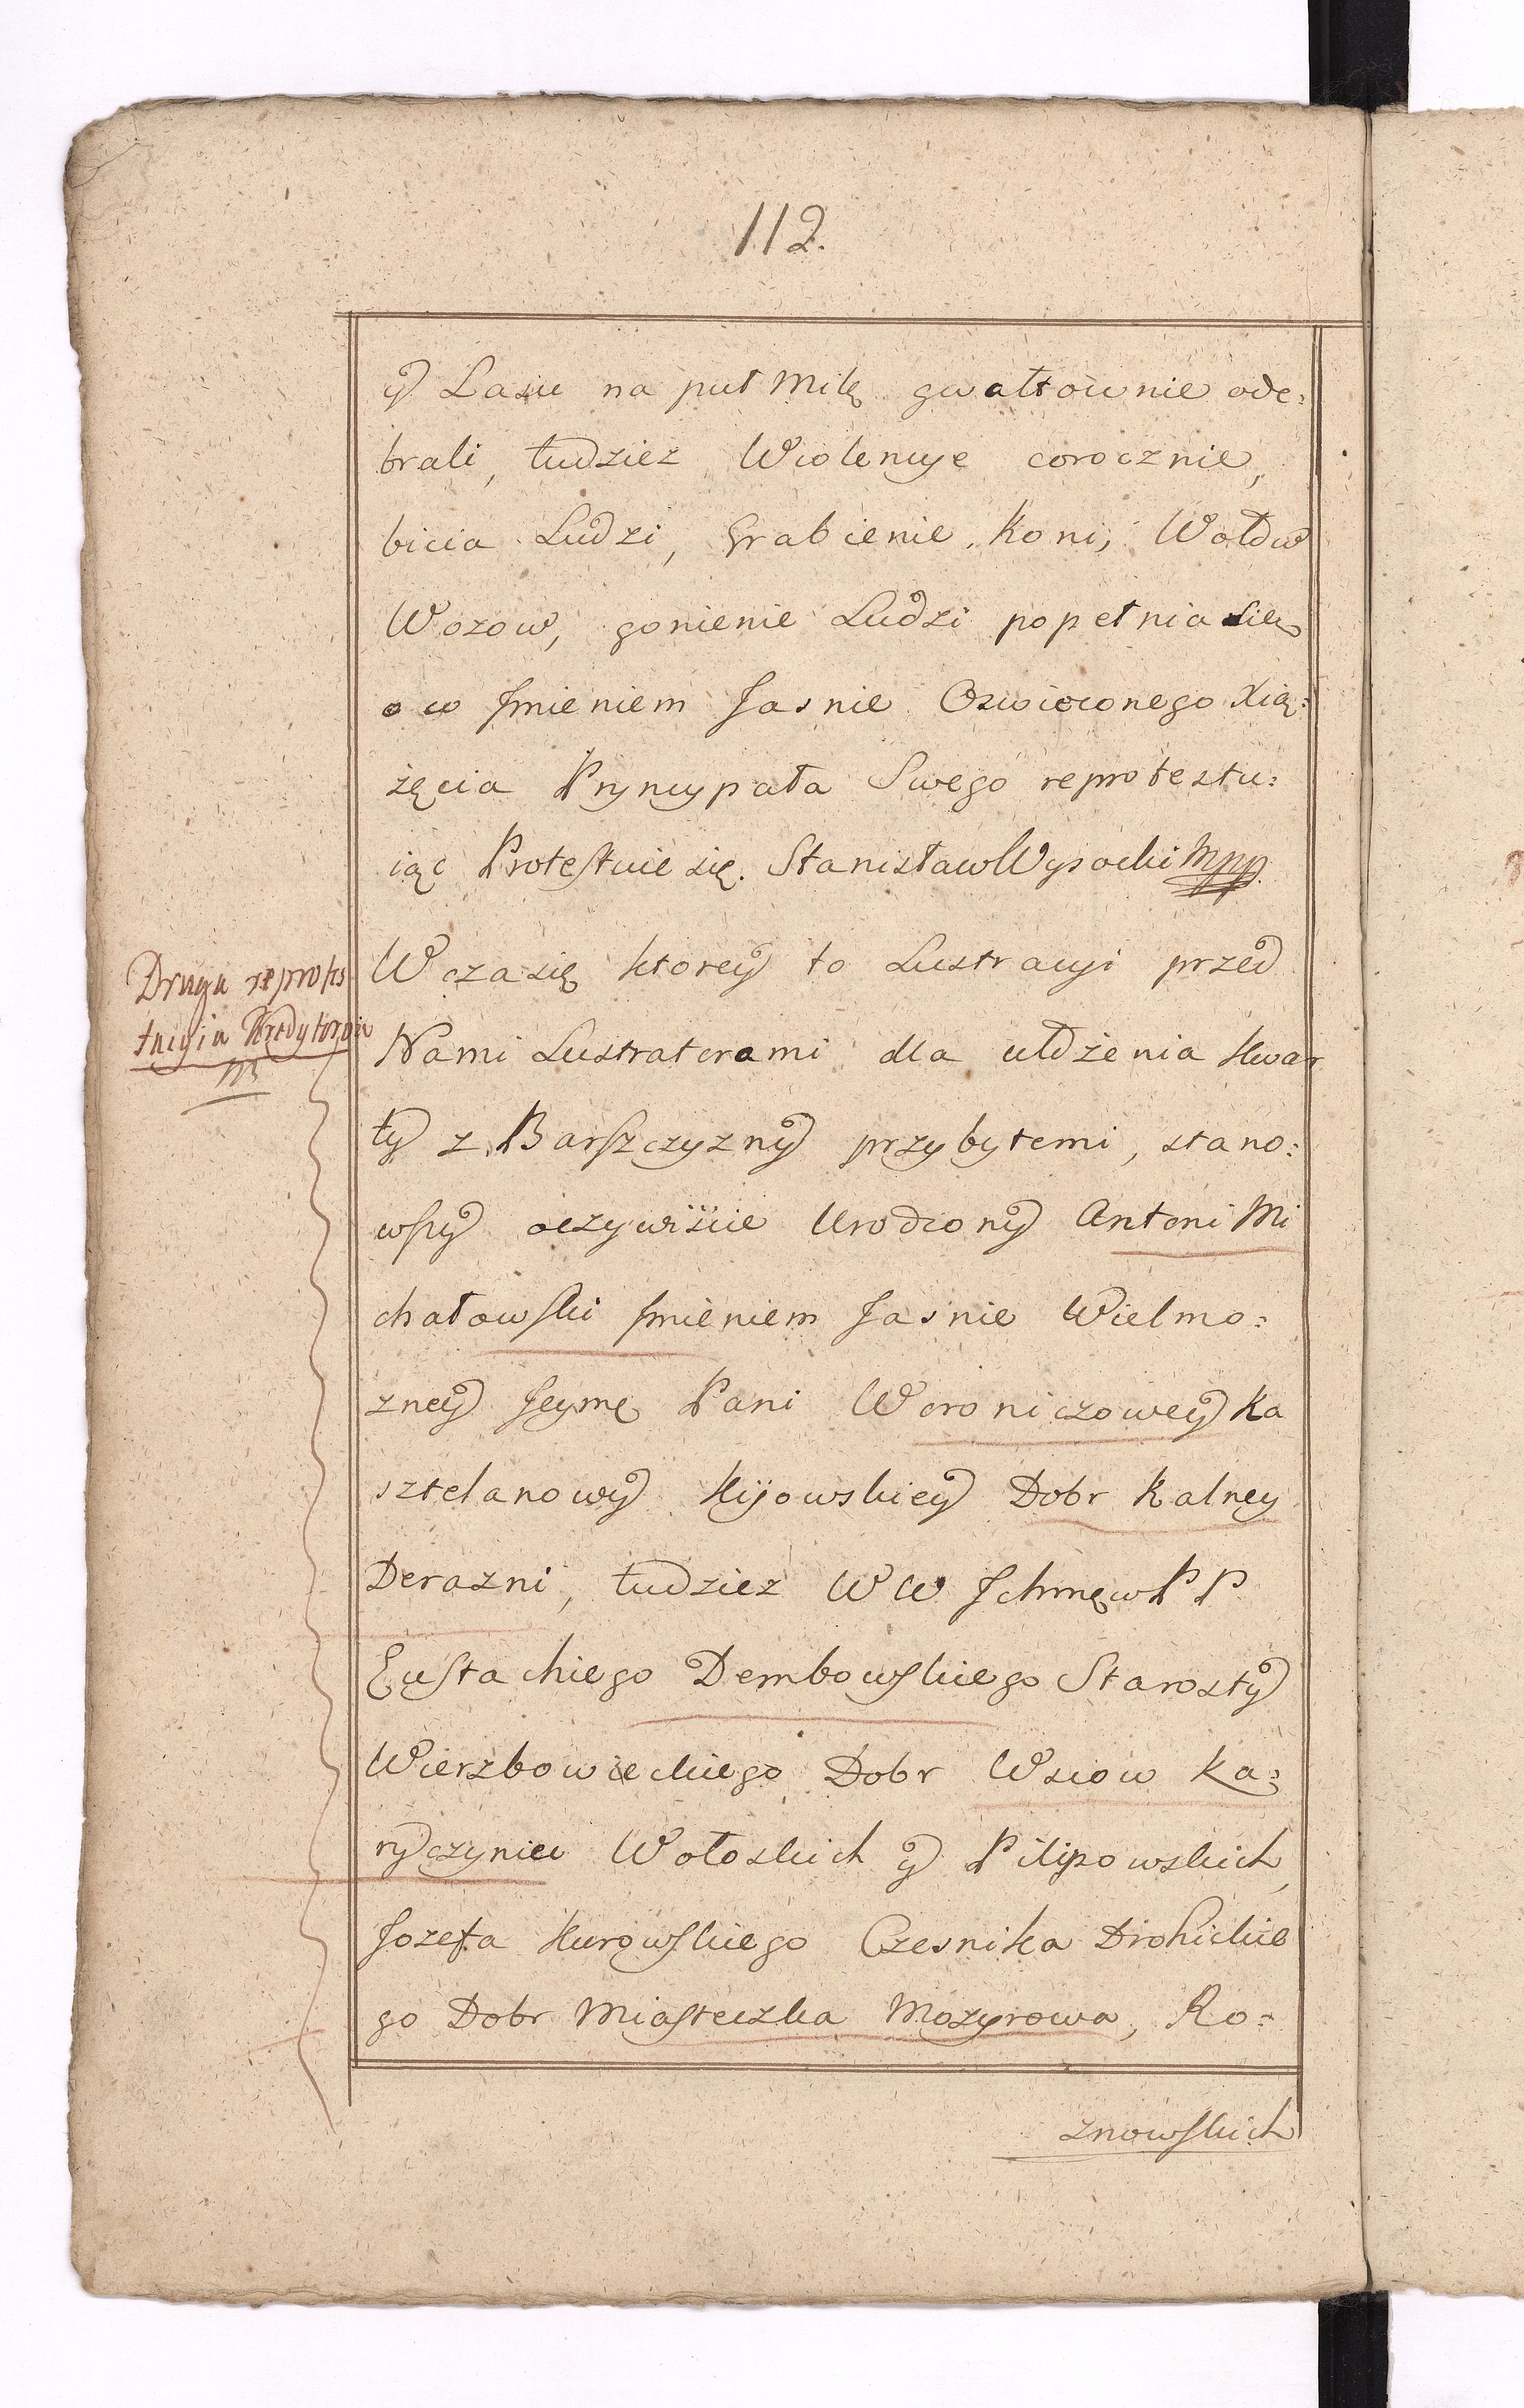 112.
y Lasu na puł Milę gwałtownie ode:
brali, tudziez Wiolencye corocznie,
bicia Ludzi, Grabienie Koni, Wołow
Wozow, gonienie Ludzi popełnia
o co Jmieniem Jasnie Oswieconego Xią:
żęcia Pryncypała Swego reprotestu:
iąc Protestuie się. Stanisław Wysocki Mpp.
W czasię ktorey to Lustracyi przed
Druga reprotes
tacyia
Nami Lustratorami dla ułożenia Kwar
ty z Barszczyzny przybytemi, stano:
wszy oczywiście Urodzony Antoni Mi
chałowski Jmieniem Jasnie Wielmo:
zney Jeymę Pani Woroniczowey Ka
sztelanowy Kijowskiey Dobr Kalney
Derazni, tudziez WW Jchmęw PP
Eustachiego Dembowskiego Starosty
Wierzbowieckiego Dobr Wsiow Ka:
ryczyniec Wołoskich y Pilipowskich,
Jozefa Kurowskiego Czesnika Drohickie
go Dobr Miasteczka Mozyrowa, Ro:
znowskich